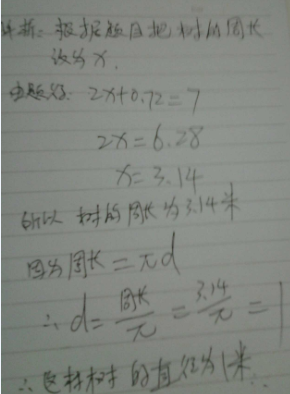 详析:根据题目把树的周长
设为x.
由题经. 2x+0.72=7
2x=6.28
x=3.14
所以 树的周长为3.14米
因为周长=πd
∴d=周长/π=3.14/π=1
∴这棵树的直径为1米.